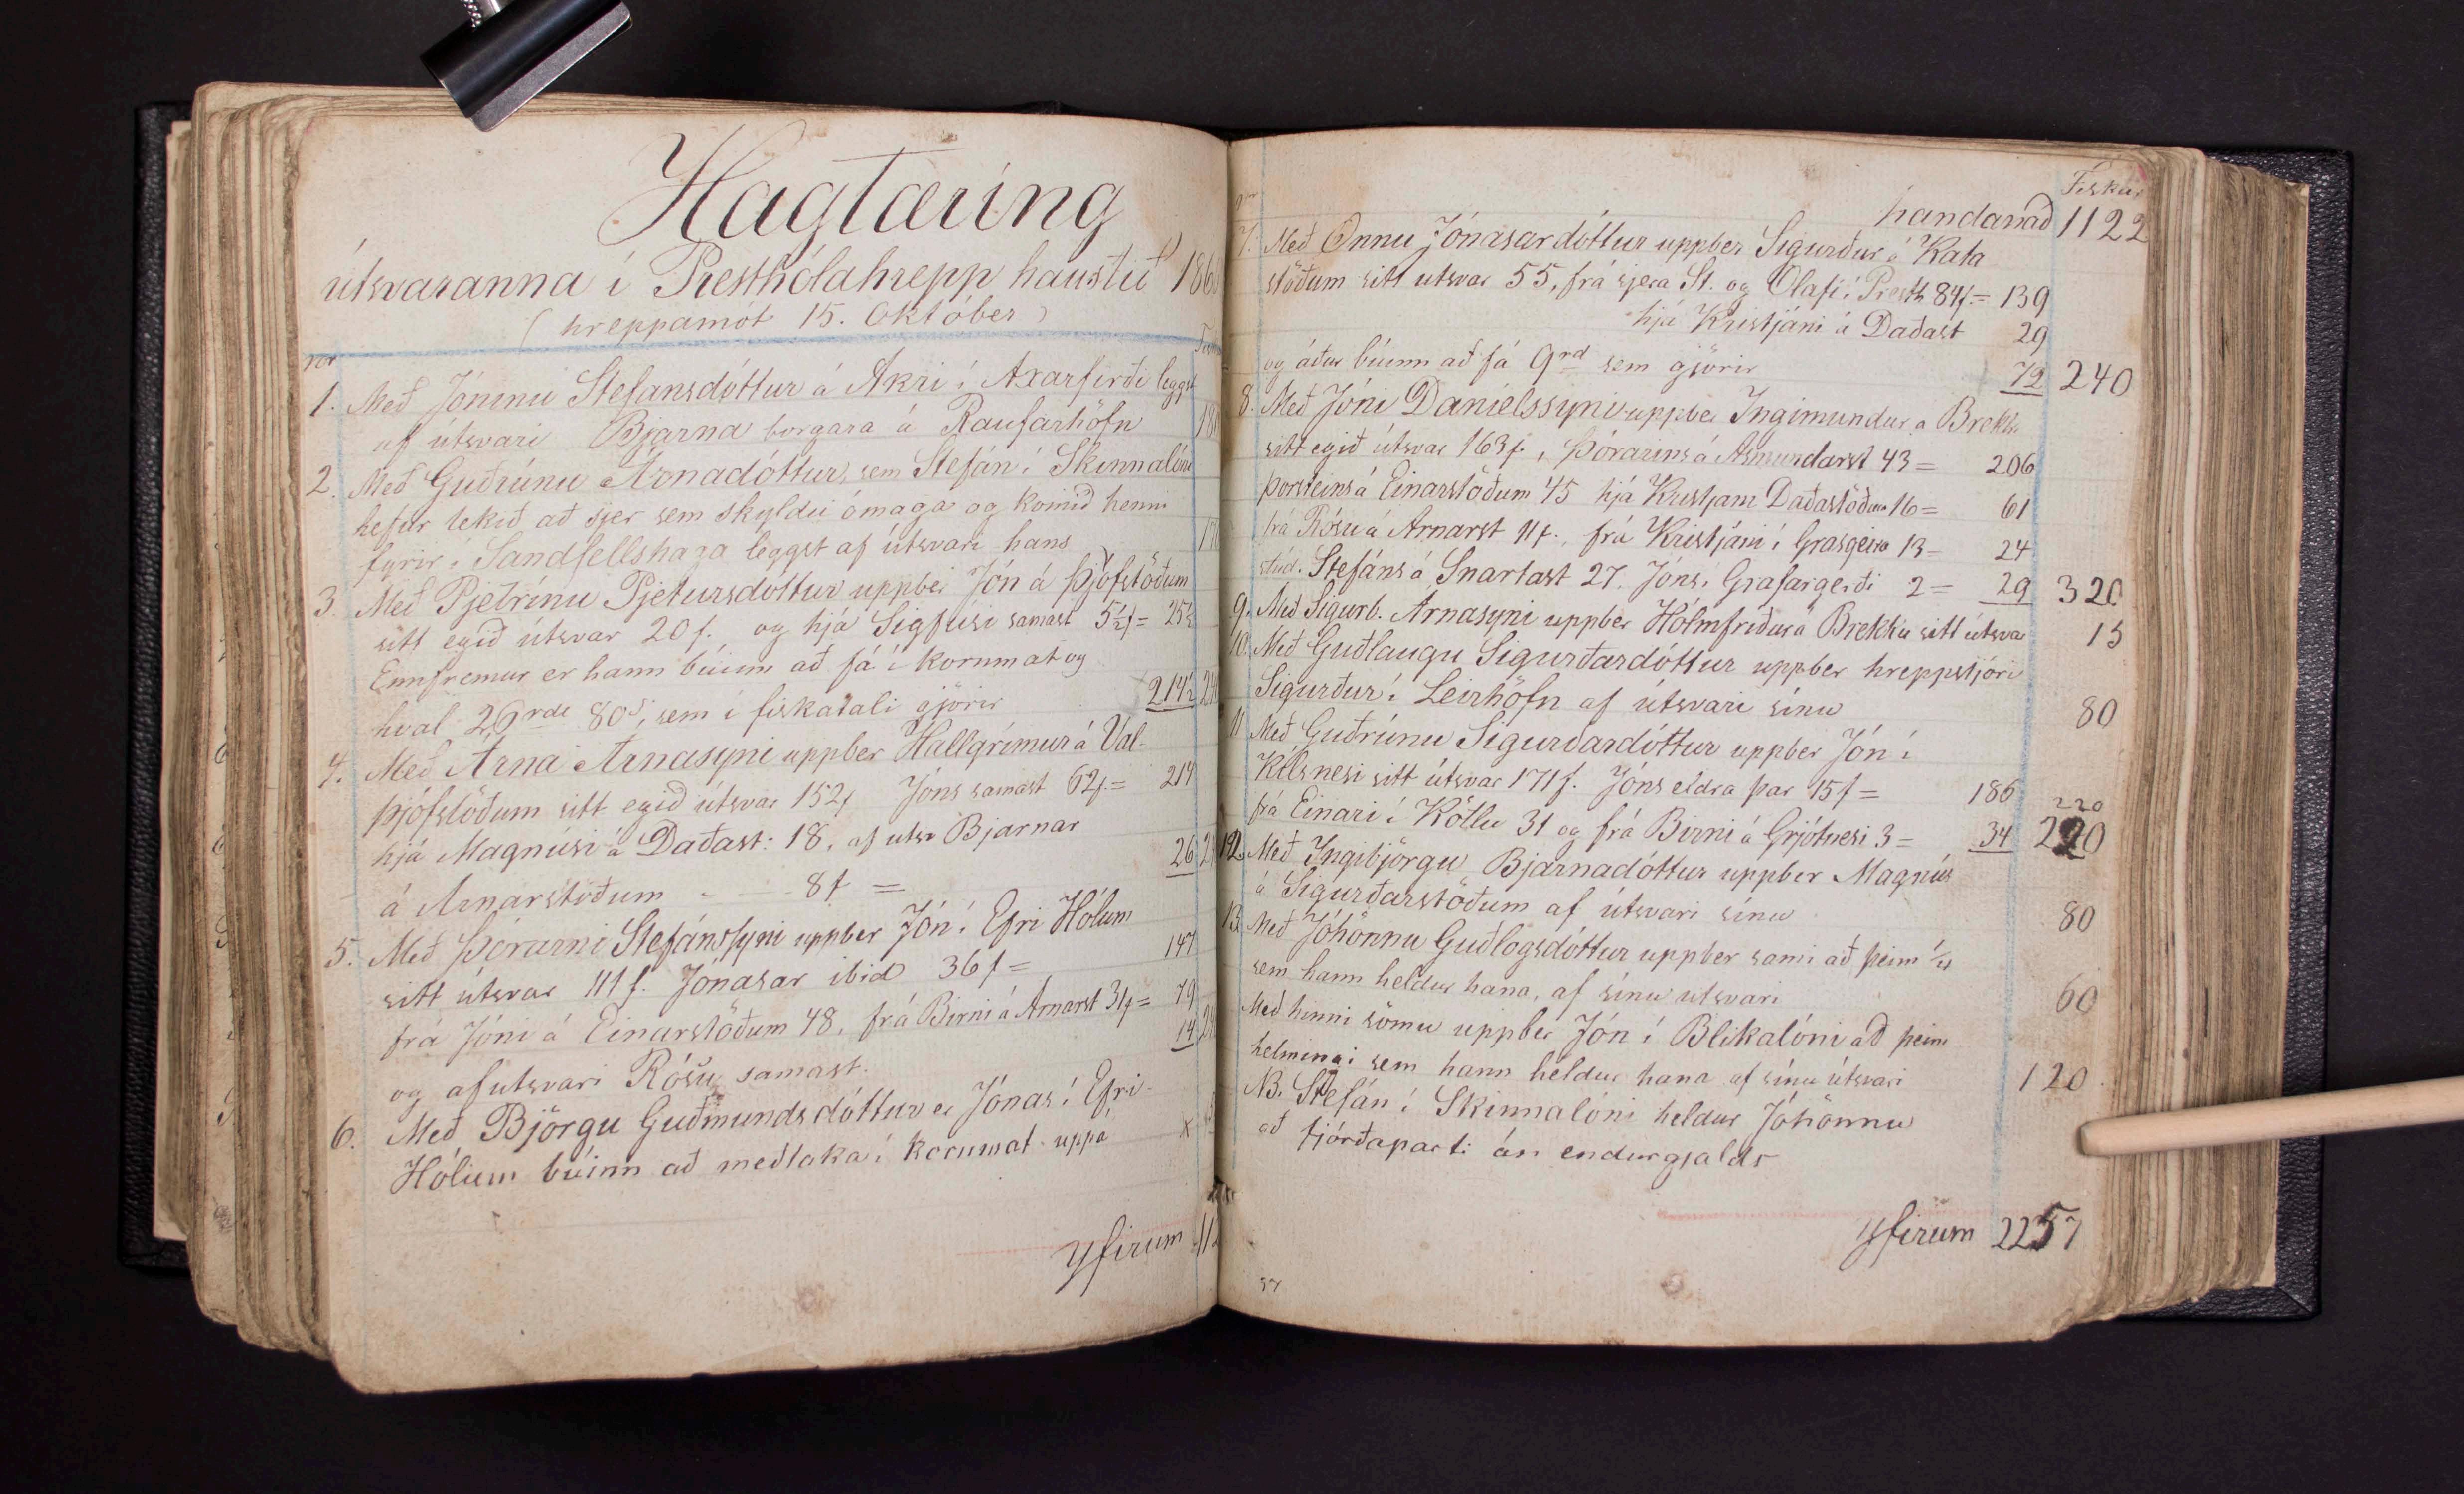 Hagtæring
útsvaranna í Presthólahrepp haustið 186
(hreppamót 15. Október)
nor
1. Með Jóninu Stefansdóttur á Akri í Axarfirði leggst
af útsvari Bjarna borgara á Raufarhöfn
2. Með Guðrúnu Árnadóttur, sem Stefán í Skinnalóni
hefur tekið að sjer sem skyldu ómaga og komið henni
fyrir í Sandfellshaga leggst af útsvari hans
3. Með Pjetrínu Pjetursdóttur uppber Jón á Þjófstöðum
sitt egið útsvar 20 f. og hjá Sigfúsi samast 5½f = 25½
Ennfremur er hann búinn að fá í kornmat og
hval 26rde 80s, sem í fiskatali gjörir 214½
4. Með Árna Árnasyni uppber Hallgrímur á Val-
þjófstöðum sitt egið útsvar 152f Jóns samast 62f. = 214
hjá Magnúsi á Daðast: 18, af utsv Bjarnar
á Arnarstöðum - 8f = 26
5. Með Þórarni Stefánssyni uppber Jón í Efri Hólum
sitt útsvar 111 f. Jónasar ibid 36f = 147
frá Jóni á Einarstöðum 48, frá Birni á Arnarst 31f = 79
og af utsvari Rósu samast. 14
6. Með Björgu Guðmundsdóttur er Jónas í Efri-
Hólum búinn að meðtaka í kornmat uppá x
Yfirum 112
Fiskar
handanað 1122
7. Með Önnu Jónasardóttur uppber Sigurður á Kata
stöðum sitt utsvar 55, frá sjera St. og Olafi í Presth 84f. = 139
hjá Kristjáni á Daðast 29
og áður búinn að fá 9rd sem gjörir 72 240
8. Með Jóni Daníelssyni uppber Ingimundur a Brekku
sitt egið útsvar 163f., Þórarins á Asmundarst 43 = 206
Þorsteins á Einarstöðum 45 hjá Kristjani Daðastöðum 16 = 61
frá Rósu á Arnarst 11f., frá Kristjáni í Grasgeira 13 - 24
stúd. Stefáns á Snartast 27. Jóns í Grafargerði 2 = 29 320
9. Með Sigurb. Arnasyni uppber Hólmfríður á Brekku sitt útsvar 15
10. Með Guðlaugu Sigurðardóttur uppber hreppstjóri
Sigurður í Leirhöfn af útsvari sínu 80
11 Með Guðrúnu Sigurðardóttur uppber Jón í
Kílsnesi sitt útsvar 171f. Jóns eldra þar 15f = 186
220
frá Einari í Kötlu 31 og frá Birni á Grjótnesi 3 = 34 220
12. Með Ingibjörgu Bjarnadóttur uppber Magnús
á Sigurðarstöðum af útsvari sínu 80
13. Með Jóhönnu Guðlogsdóttur uppber sami að þeim ¼
sem hann heldur hana, af sínu utsvari 60
Með hinni sömu uppber Jón í Blikalóni að þeim
helmingi sem hann heldur hana af sínu útsvari 120
NB. Stefán í Skinnalóni heldur Jóhönnu
að fjórðaparti án endurgjalds
Yfirum 2257